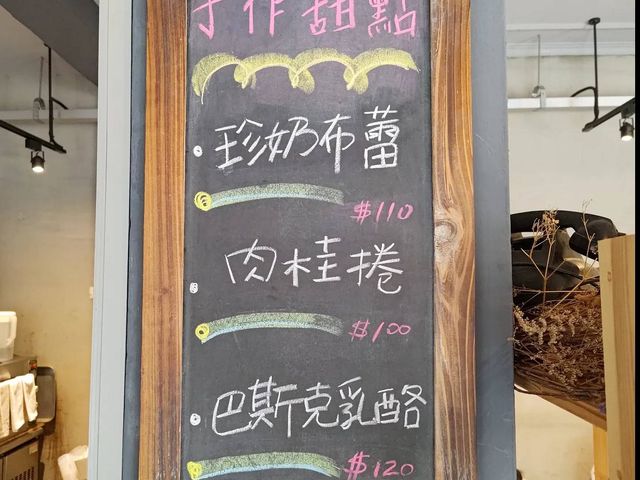 手作甜點
珍奶布蕾
$110
肉桂捲
$100
巴斯克乳酪
$120